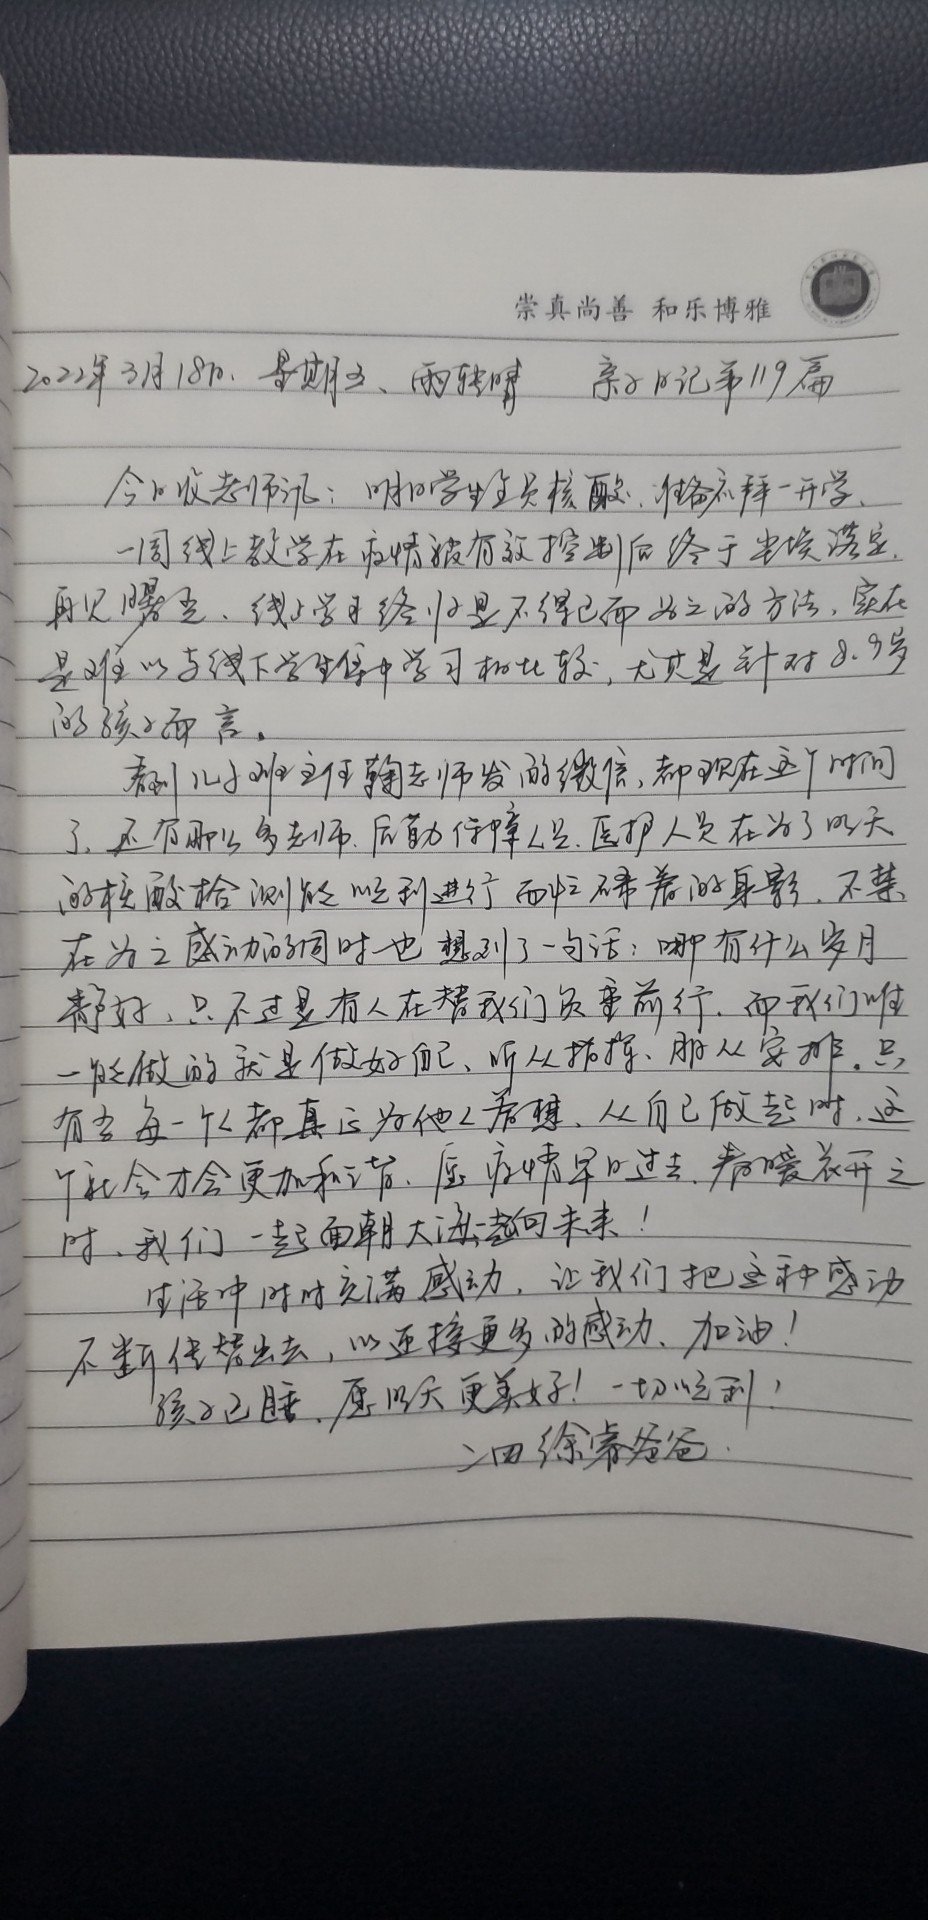 崇真尚善 和乐博雅
2022年3月18日、星期五、雨转晴 亲子日记第119篇
今日收老师讯：明日学生全员核酸、准备礼拜一开学、
一周线上教学在疫情被有效控制后终于尘埃落定、
再见曙光、线上学习终归是不得已而为之的方法、实在
是难以与线下学生集中学习相比较，尤其是针对8、9岁
的孩子而言。
看到儿子班主任鞠老师发的微信，都现在这个时间
了、还有那么多老师、后勤保障人员、医护人员在为了明天
的核酸检测能顺利进行而忙碌着的身影、不禁
在为之感动的同时也想到了一句话：哪有什么岁月
静好、只不过是有人在替我们负重前行、而我们唯
一能做的就是做好自己、听从指挥、服从安排。只
有当每一个人都真正为他人着想、从自己做起时、这
个社会才会更加和谐、愿疫情早日过去、春暖花开之
时、我们一起面朝大海，走向未来！
生活中时时充满感动，让我们把这种感动
不断传播出去，以迎接更多的感动、加油！
孩子已睡、愿明天更美好！一切顺利！
二四 徐睿爸爸.